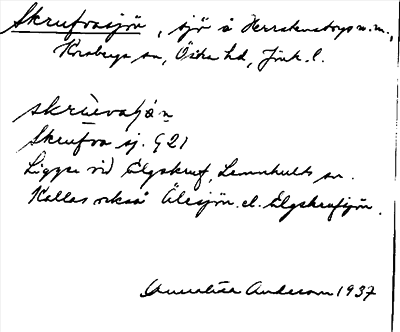 Skrufvasjön, sjö å Herrskensborgs m.m.,
Korsberga sn, Östra hd, Jönk. l.
skrùevaʃö̀n
Skrufva sj. G21
Ligger vid Elgskruf, Lemnhults sn.
Kallas också Älesjön el. Elgskrufsjön.
Annelise Anderson 1937